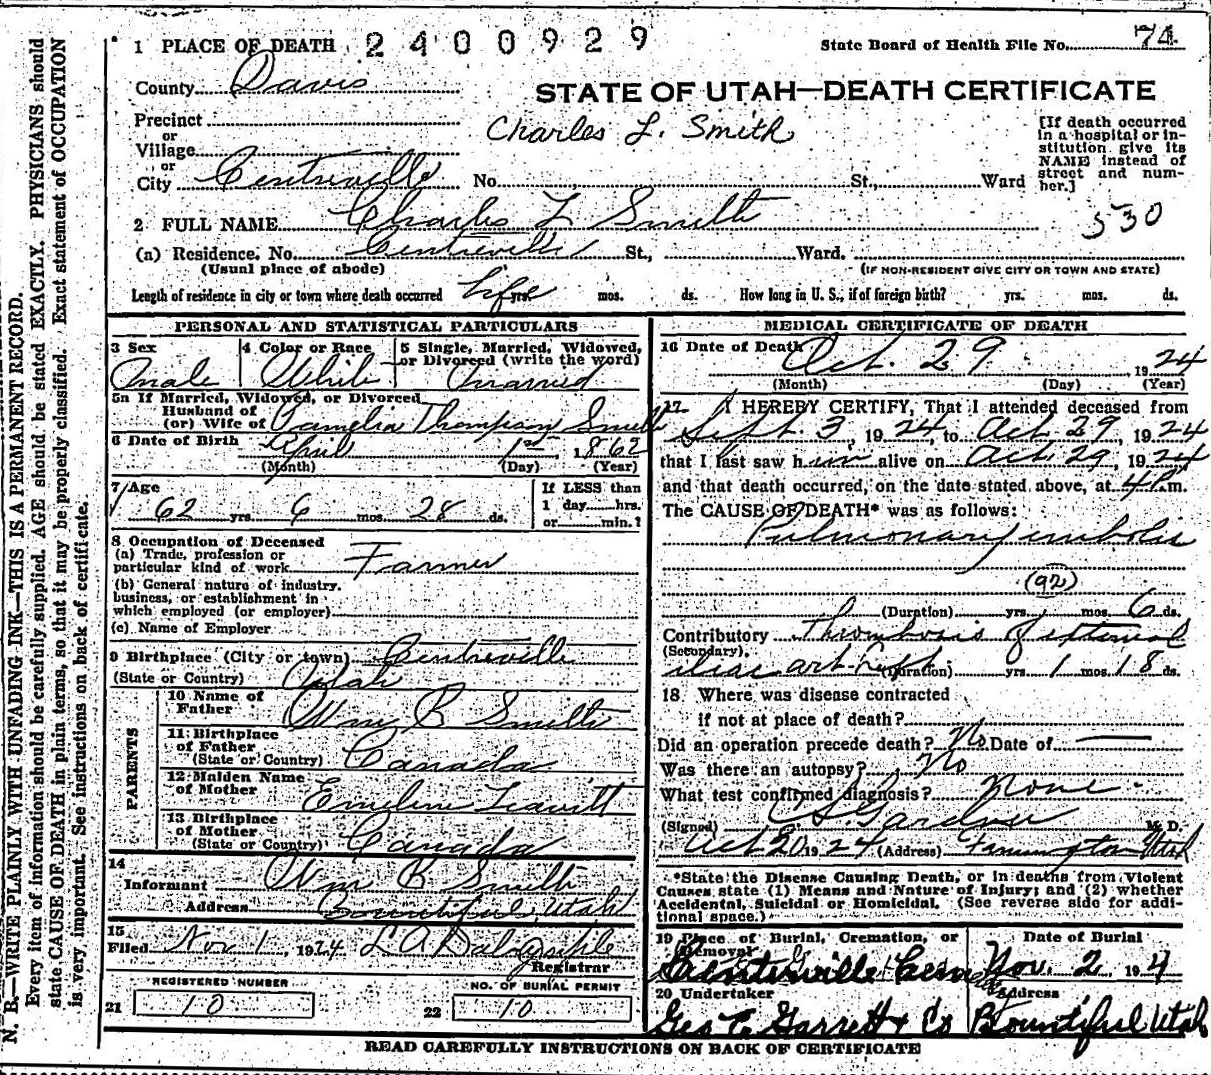 1 PLACE OF DEATH 2400929 State Board of Health File No. 74
County Davis
STATE OF UTAH—DEATH CERTIFICATE
Precinct
or
Village
or
City Centreville No. St., Ward
Charles L. Smith
[If death occurred
in a hospital or in-
stitution give its
NAME instead of
street and num-
ber.]
2 FULL NAME Charles L Smith
530
(a) Residence. No. Centreville St., Ward.
(Usual place of abode) (IF NON-RESIDENT GIVE CITY OR TOWN AND STATE)
Length of residence in city or town where death occurred life yrs. mos. ds. How long in U. S., if of foreign birth? yrs. mos. ds.
PERSONAL AND STATISTICAL PARTICULARS
3 Sex 4 Color or Race 5 Single, Married, Widowed,
or Divorced (write the word)
Male White Married
5a If Married, Widowed, or Divorced
Husband of
(or) Wife of Pamelia Thompson Smith
6 Date of Birth April 1st, 1862
(Month) (Day) (Year)
7 Age If LESS than
62 yrs. 6 mos. 28 ds. 1 day hrs.
or min.?
8 Occupation of Deceased
(a) Trade, profession or
particular kind of work Farmer
(b) General nature of industry.
business, or establishment in
which employed (or employer)
(c) Name of Employer
9 Birthplace (City or town) Centreville
(State or Country) Utah
PARENTS
10 Name of
Father Wm R Smith
11 Birthplace
of Father
(State or Country) Canada
12 Maiden Name
of Mother Emeline Leavitt
13 Birthplace
of Mother
(State or Country) Canada
14
Informant Wm R Smith
Address Bountiful Utah
15
Filed Nov 1, 1924 L A
Registrar
REGISTERED NUMBER NO. OF BURIAL PERMIT
21 10 22 10
MEDICAL CERTIFICATE OF DEATH
16 Date of Death Oct. 29, 1924
(Month) (Day) (Year)
17 I HEREBY CERTIFY, That I attended deceased from
Sept. 3, 1924, to Oct 29, 1924
that I last saw him alive on Oct 29, 1924
and that death occurred, on the date stated above, at 4 P. m.
The CAUSE OF DEATH* was as follows:
Pulmonary embolis
(92)
(Duration) yrs. mos. 6 ds.
Contributory Thrombosis of external
(Secondary).
iliac art. (Duration) yrs. 1 mos. 18 ds.
18 Where was disease contracted
if not at place of death?
Did an operation precede death? No Date of
Was there an autopsy? No
What test confirmed diagnosis? None
(Signed) Gardner M. D.
Oct 30 1924 (Address) Farmington Utah
*State the Disease Causing Death, or in deaths from Violent
Causes state (1) Means and Nature of Injury; and (2) whether
Accidental, Suicidal or Homicidal. (See reverse side for addi-
tional space.)
19 Place of Burial, Cremation, or Date of Burial
Removal
Centerville Cem Nov. 2 194
20 Undertaker Address
Geo C. Garrett & Co Bountiful Utah
READ CAREFULLY INSTRUCTIONS ON BACK OF CERTIFICATE
N. B.—WRITE PLAINLY WITH UNFADING INK—THIS IS A PERMANENT RECORD.
Every item of information should be carefully supplied. AGE should be stated EXACTLY. PHYSICIANS should
state CAUSE OF DEATH in plain terms, so that it may be properly classified. Exact statement of OCCUPATION
is very important. See instructions on back of certificate.